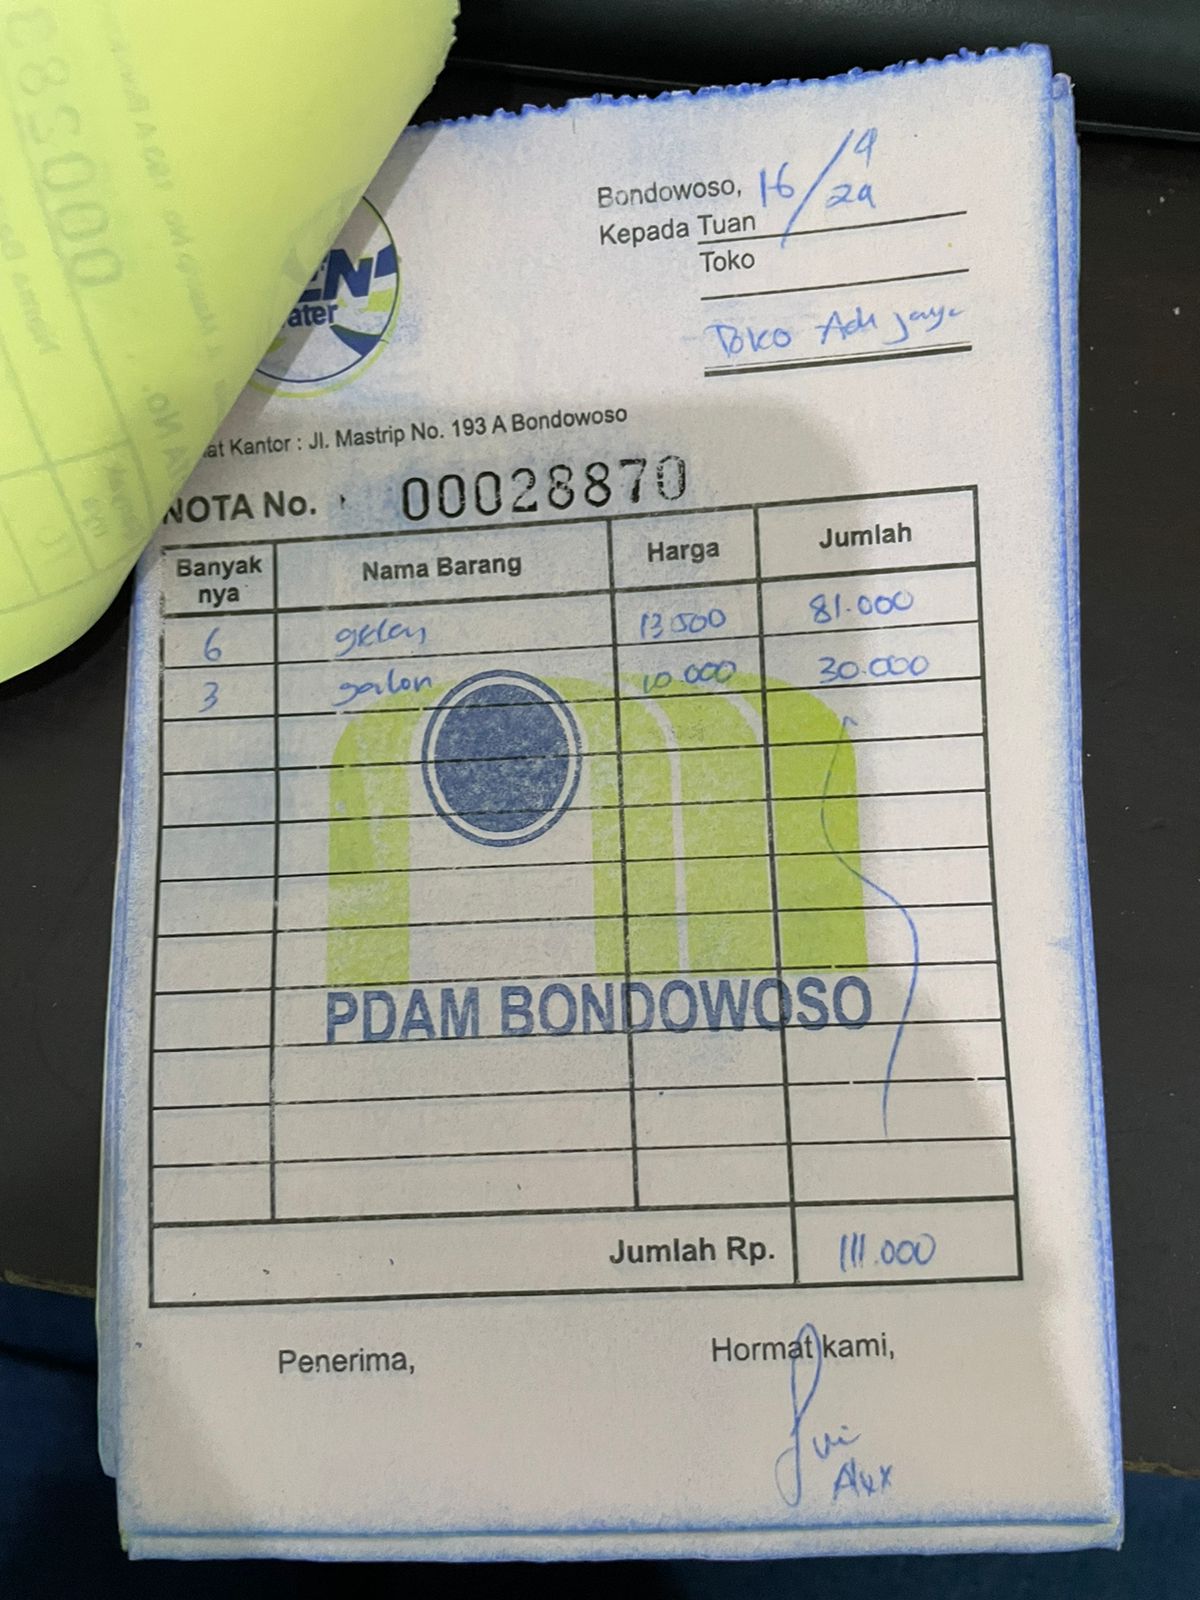 Bondowoso, 16/9
24
Kepada Tuan
Toko
Toko Adi jaya
EN
ater
at Kantor : Jl. Mastrip No. 193 A Bondowoso
NOTA No. 00028870
Banyak nya Nama Barang Harga Jumlah
6 gelas 13.500 81.000
3 galon 10.000 30.000
PDAM BONDOWOSO
Jumlah Rp. 111.000
Penerima, Hormat kami,